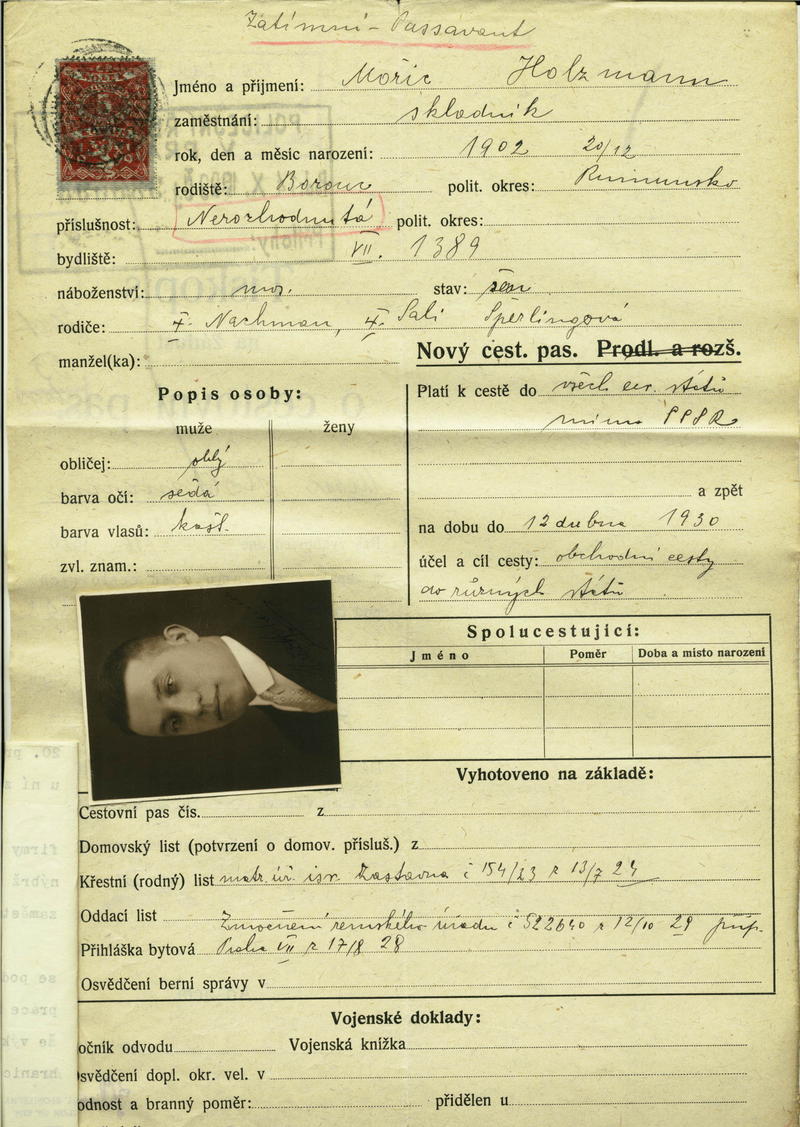 Zatímní - Passavant
Jméno a příjmení: Mořic Holzmann
zaměstnání: skladník
rok, den a měsíc narození: 1902 20/12
rodiště: polit. okres: Rumunsko
příslušnost: Nerozhodnutá polit. okres:
bydliště: VII. 1389
náboženství: stav:
rodiče: Nachman, Sali Šperlingová
manžel(ka):
Nový cest. pas. Prodl. a rozš.
Popis osoby:
muže ženy
obličej: oblý
barva očí: šedá
barva vlasů: kašt.
zvl. znam.:
Platí k cestě do všech eur. států
mimo SSSR
a zpět
na dobu do 12 dubna 1930
účel a cíl cesty: obchodní cesty
do různých států
Spolucestující:
Jméno Poměr Doba a místo narození
Vyhotoveno na základě:
Cestovní pas čís. z
Domovský list (potvrzení o domov. přísluš.) z
Křestní (rodný) list matr. úř. isr. Zastavna č 154/23 z 13/7 24
Oddací list
Zmocnění zemského úřadu č 522640 z 12/10 29
Přihláška bytová Praha VII z 17/8 28
Osvědčení berní správy v
Vojenské doklady:
očník odvodu Vojenská knížka
svědčení dopl. okr. vel. v
odnost a branný poměr: přidělen u